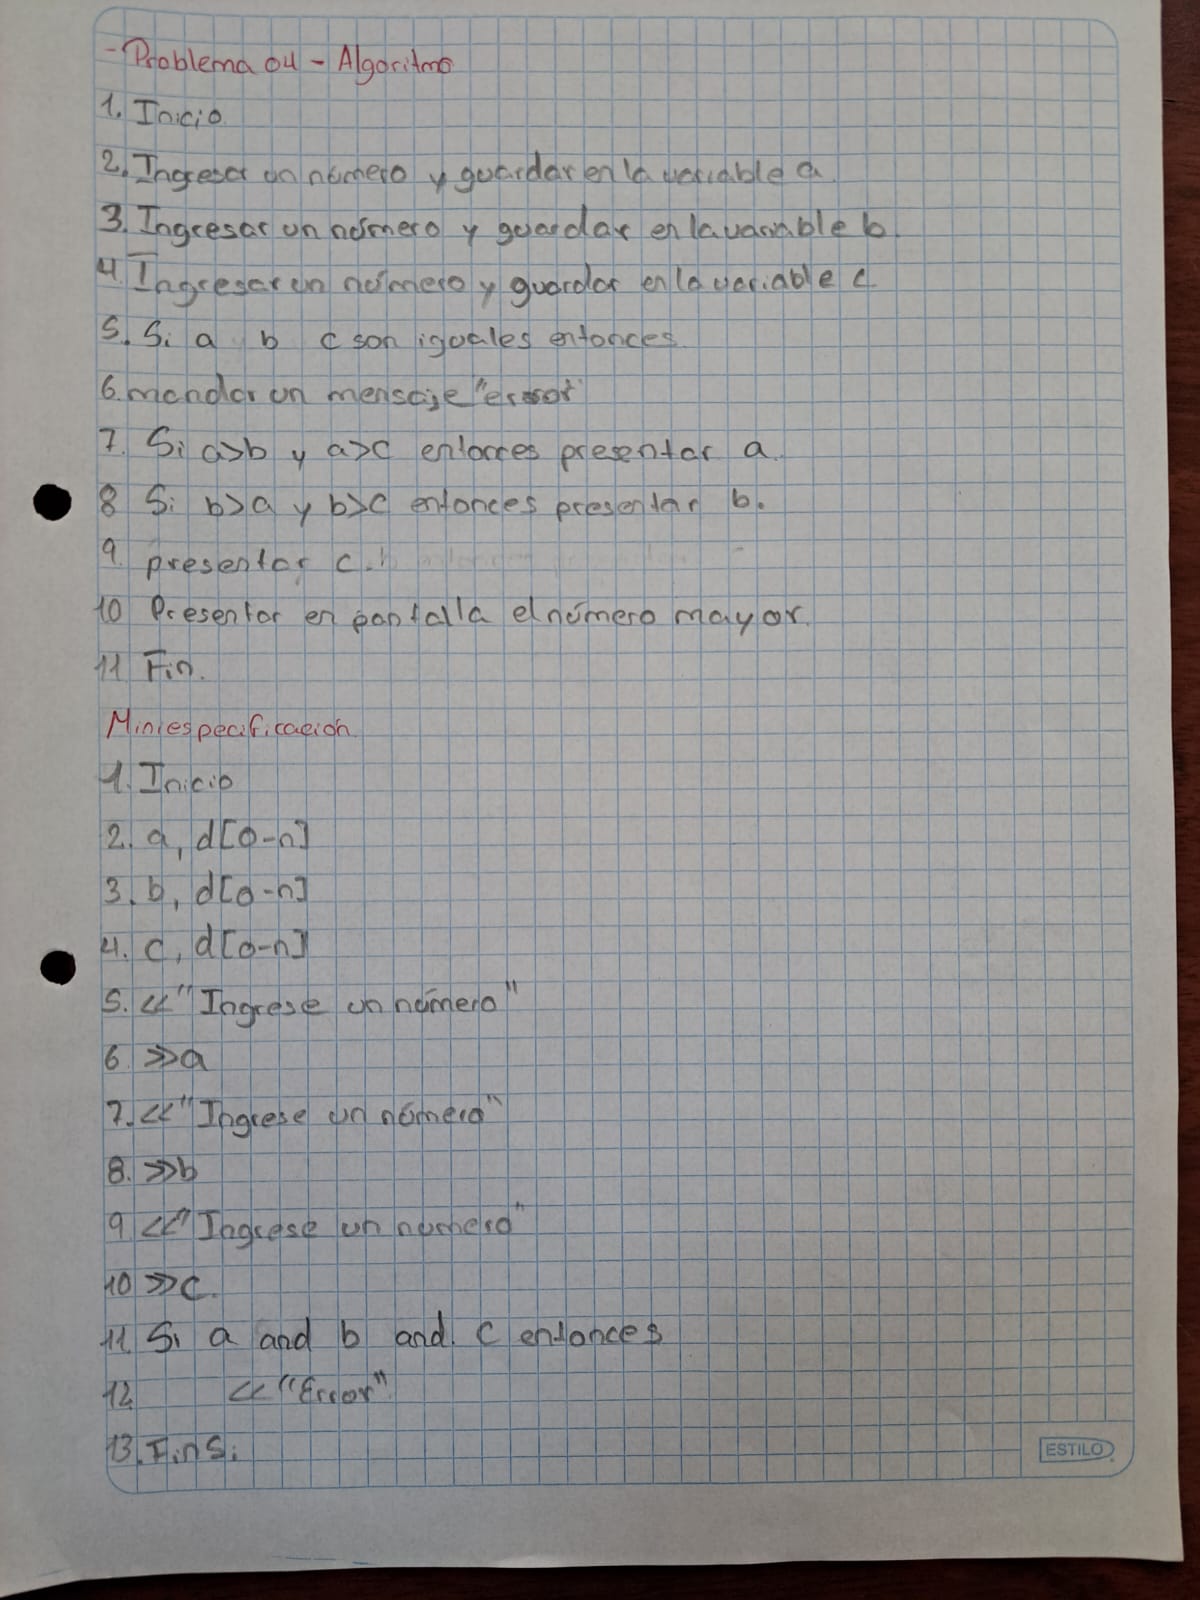 - Problema 04 - Algoritmo
1. Inicio
2. Ingresar un número y guardar en la variable a
3. Ingresar un número y guardar en la variable b.
4 Ingresar un número y guardar en la variable c
5. Si a b c son iguales entonces.
6. mandar un mensaje "error"
7. Si a>b y a>c entonces presentar a.
8 Si b>a y b>c entonces presentar b.
9. presentar c.
10 Presentar en pantalla el número mayor.
11 Fin.
Miniespecificación
1. Inicio
2. a, d[0-n]
3. b, d[0-n]
4. c, d[0-n]
5. << "Ingrese un número"
6. >>a
7. << "Ingrese un número"
8. >>b
9 << "Ingrese un numero"
10 >>c.
11 Si a and b and. c entonces
12 << "Error"
13. Fin Si
ESTILO